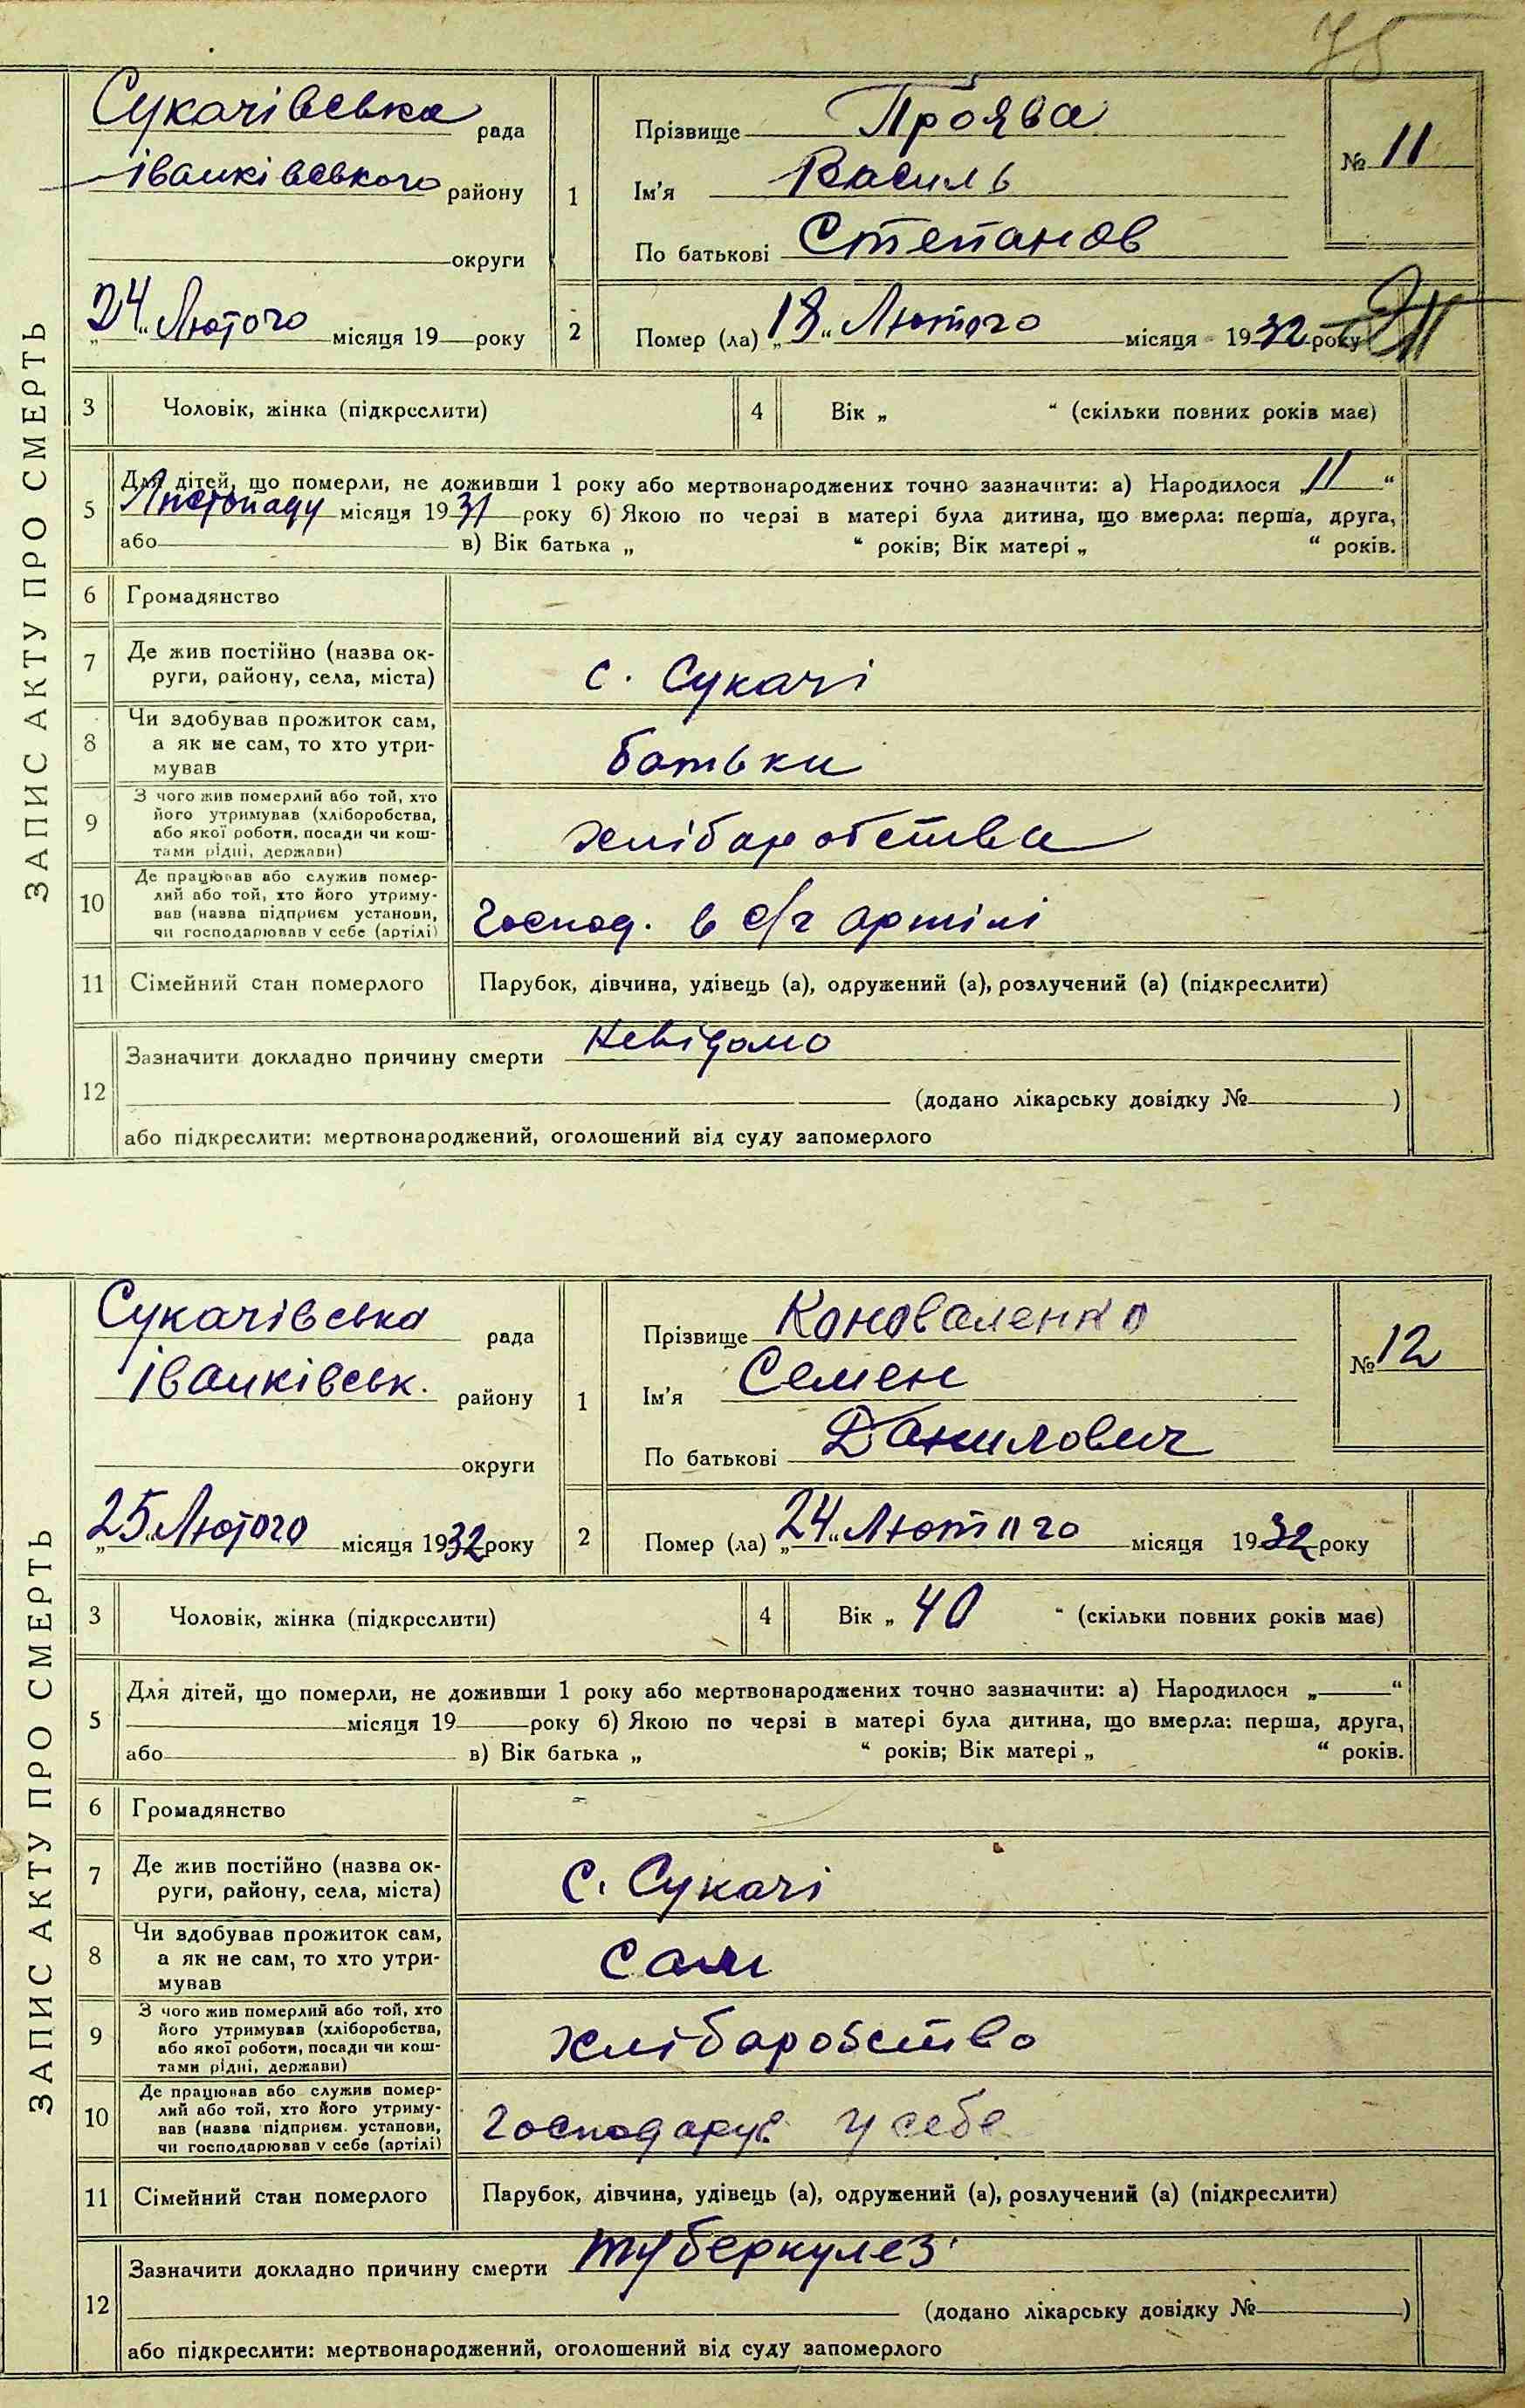 75
ЗАПИС АКТУ ПРО СМЕРТЬ
Сукачівська рада
Іванківського району
округи
24 „ Лютого місяця 19 року
1
Прізвище Проява
Ім'я Василь
По батькові Степанов
№ 11
2
Помер (ла) „18“ Лютого місяця 1932 року
3 Чоловік, жінка (підкреслити)
4 Вік „ “ (скільки повних років має)
5 Для дітей, що померли, не доживши 1 року або мертвонароджених точно зазначити: а) Народилося „11“
Листопаду місяця 1931 року б) Якою по черзі в матері була дитина, що вмерла: перша, друга,
або в) Вік батька „ “ років; Вік матері „ “ років.
6 Громадянство
7 Де жив постійно (назва ок-
руги, району, села, міста)
с. Сукачі
8 Чи здобував прожиток сам,
а як не сам, то хто утри-
мував
батьки
9 З чого жив померлий або той, хто
його утримував (хліборобства,
або якої роботи, посади чи кош-
тами рідні, держави)
хлібаробства
10 Де працював або служив помер-
лий або той, хто його утриму-
вав (назва підприєм установи,
чи господарював у себе (артілі)
Господ. в с/г артілі
11 Сімейний стан померлого
Парубок, дівчина, удівець (а), одружений (а), розлучений (а) (підкреслити)
12 Зазначити докладно причину смерти Невідомо
(додано лікарську довідку № )
або підкреслити: мертвонароджений, оголошений від суду запомерлого
ЗАПИС АКТУ ПРО СМЕРТЬ
Сукачівська рада
Іванківськ. району
округи
„25“ Лютого місяця 1932 року
1
Прізвище Коноваленко
Ім'я Семен
По батькові Данилович
№ 12
2
Помер (ла) „24“ Лютого місяця 1932 року
3 Чоловік, жінка (підкреслити)
4 Вік „ 40 “ (скільки повних років має)
5 Для дітей, що померли, не доживши 1 року або мертвонароджених точно зазначити: а) Народилося „ “
місяця 19 року б) Якою по черзі в матері була дитина, що вмерла: перша, друга,
або в) Вік батька „ “ років; Вік матері „ “ років.
6 Громадянство
7 Де жив постійно (назва ок-
руги, району, села, міста)
С. Сукачі
8 Чи здобував прожиток сам,
а як не сам, то хто утри-
мував
Сам
9 З чого жив померлий або той, хто
його утримував (хліборобства,
або якої роботи, посади чи кош-
тами рідні, держави)
хлібаробство
10 Де працював або служив помер-
лий або той, хто його утриму-
вав (назва підприєм. установи,
чи господарював у себе (артілі)
Господарув у себе
11 Сімейний стан померлого
Парубок, дівчина, удівець (а), одружений (а), розлучений (а) (підкреслити)
12 Зазначити докладно причину смерти туберкулез
(додано лікарську довідку № )
або підкреслити: мертвонароджений, оголошений від суду запомерлого